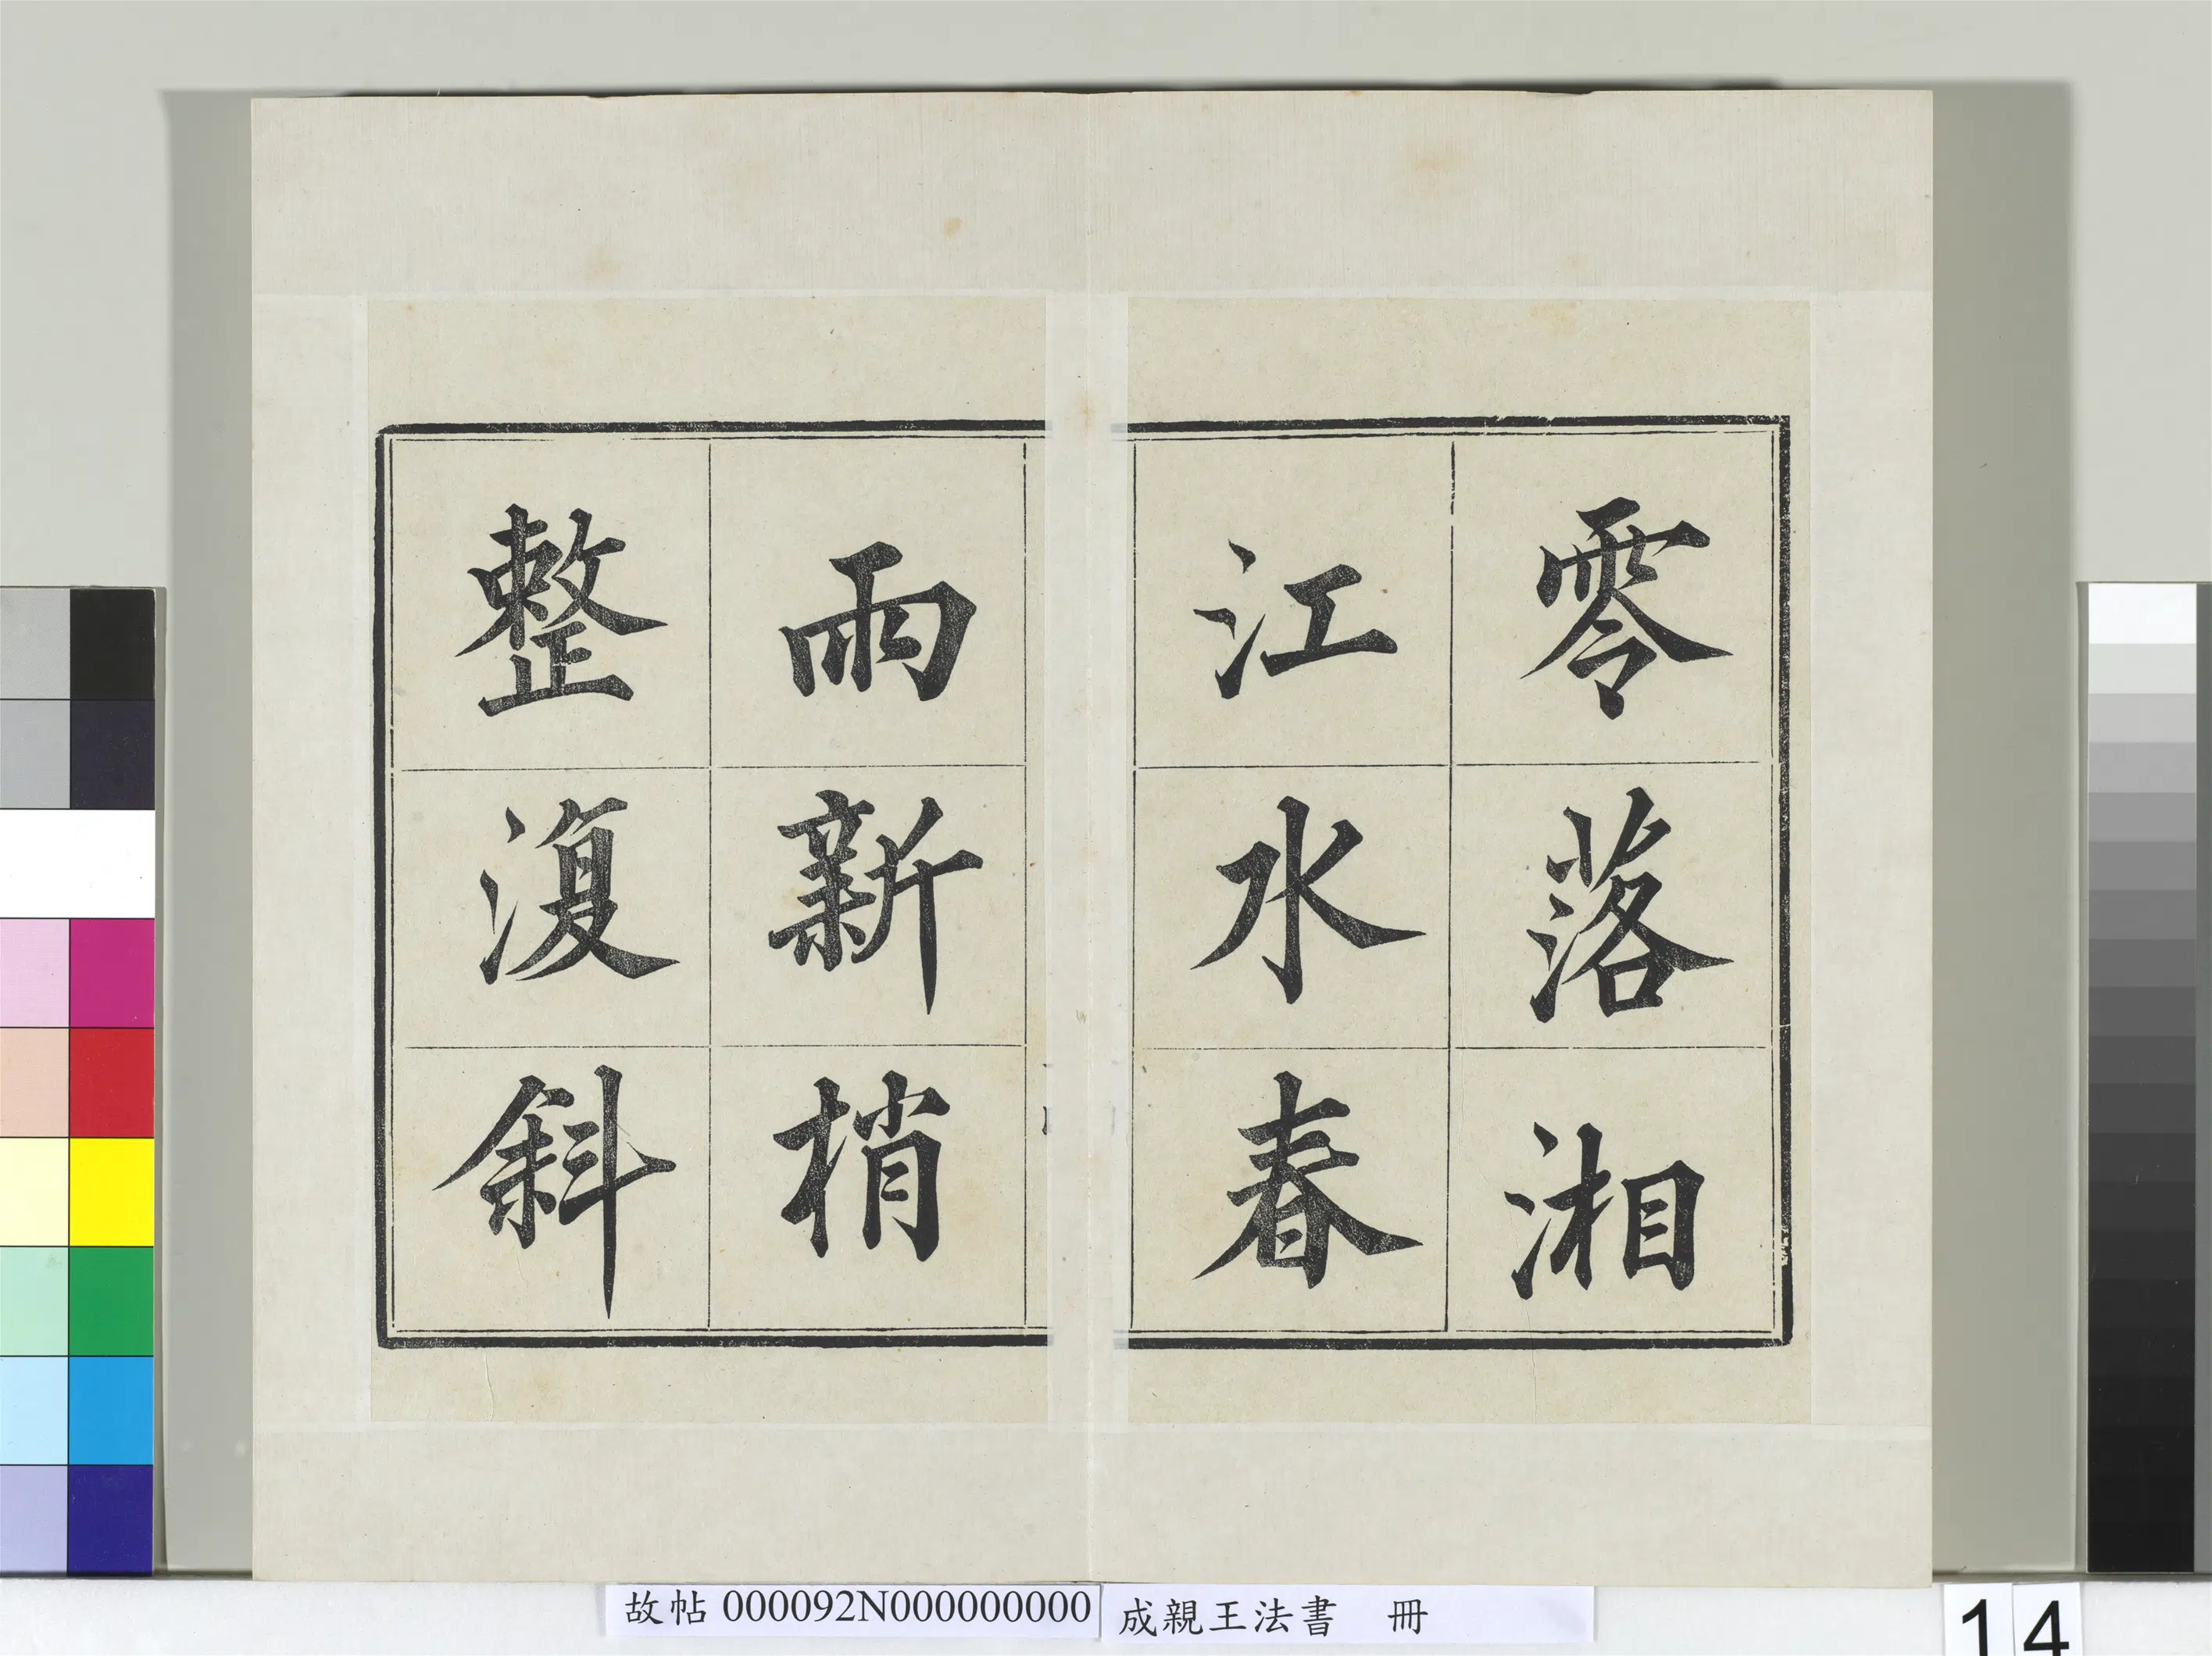 零落湘
江水春
雨新梢
整復斜
故帖 000092N000000000
成親王法書 冊
14